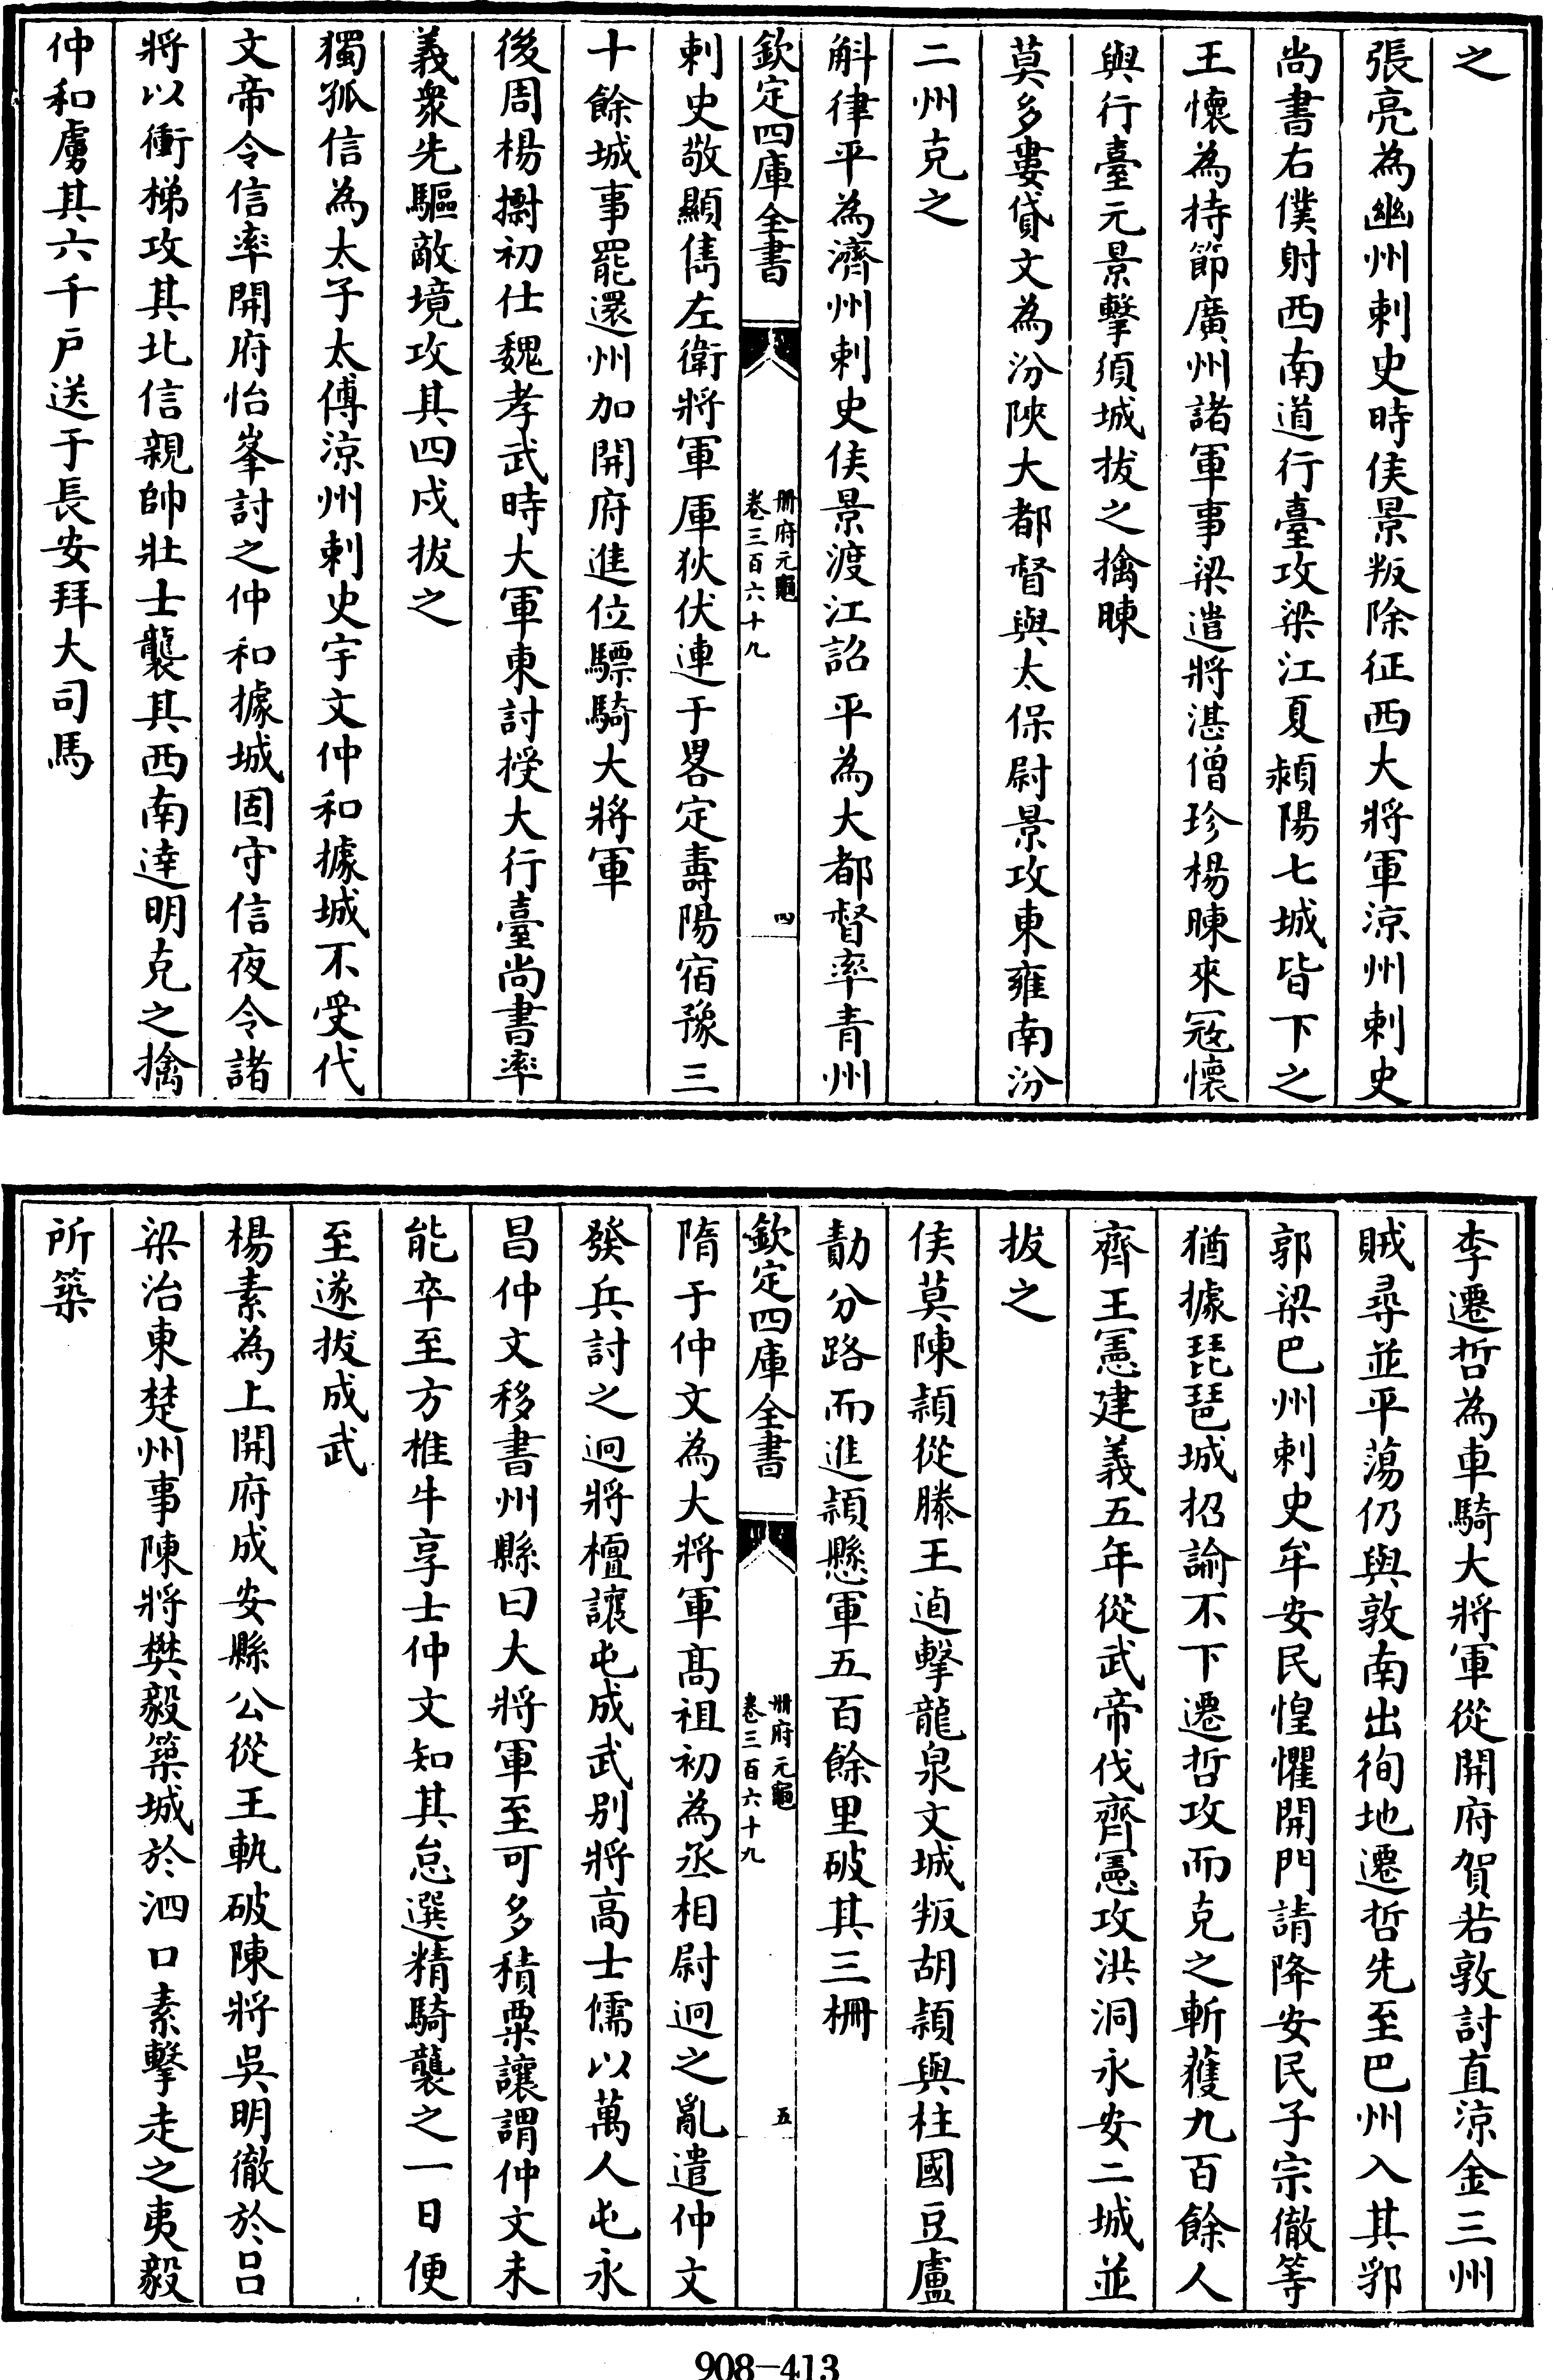 之
張亮為幽州刺史時侯景叛除征西大將軍涼州刺史
尚書右僕射西南道行臺攻梁江夏潁陽七城皆下之
王懷為持節廣州諸軍事梁遣將湛僧珍楊暕來冦懷
與行臺元景擊須城拔之擒暕
莫多婁貸文為汾陜大都督與太保尉景攻東雍南汾
二州克之
斛律平為濟州刺史侯景渡江詔平為大都督率青州
欽定四庫全書
册府元龜
卷三百六十九
四
刺史敬顯儁左衛將軍厙狄伏連于畧定壽陽宿豫三
十餘城事罷還州加開府進位驃騎大將軍
後周楊㩲初仕魏孝武時大軍東討授大行臺尚書率
義衆先驅敵境攻其四戍拔之
獨孤信為太子太傅涼州刺史宇文仲和據城不受代
文帝令信率開府怡峯討之仲和據城固守信夜令諸
將以衝梯攻其北信親帥壯士襲其西南逹明克之擒
仲和虜其六千戸送于長安拜大司馬
李遷哲為車騎大將軍從開府賀若敦討直涼金三州
賊尋並平蕩仍與敦南出徇地遷哲先至巴州入其郛
郭梁巴州刺史牟安民惶懼開門請降安民子宗徹等
猶據琵琶城招諭不下遷哲攻而克之斬獲九百餘人
齊王憲建義五年從武帝伐齊憲攻洪洞永安二城並
拔之
侯莫陳頴從滕王逌擊龍泉文城叛胡頴與柱國豆盧
勣分路而進頴懸軍五百餘里破其三柵
欽定四庫全書
册府元龜
卷三百六十九
五
隋于仲文為大將軍髙祖初為丞相尉迥之亂遣仲文
發兵討之迥將檀讓屯成武别將高士儒以萬人屯永
昌仲文移書州縣曰大將軍至可多積粟讓謂仲文未
能卒至方椎牛享士仲文知其怠選精騎襲之一日便
至遂拔成武
楊素為上開府成安縣公從王軌破陳將吳明徹於呂
梁治東楚州事陳將樊毅築城於泗口素擊走之夷毅
所築
908-413